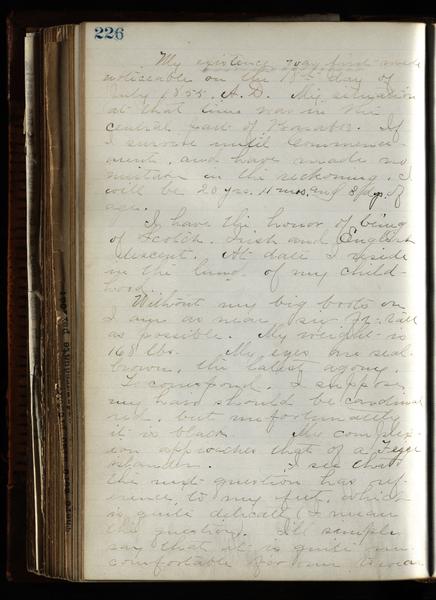 226
My existence was first made
noticeable on the 13th day of
July 1855, A.D. My situation
at that time was in the
central part of
I survive until Commence
ment, and have made no
mistake in the reckoning, I
will be 20 yrs. 11 mos. and 8 dys. of
age.
I have the honor of being
of Scotch, Irish and English
descent. At date I reside
in the land of my child-
hood.
Without my big boots on
I am as near six ft. tall
as possible. My weight is
168 lbs. My eyes are seal
brown, the latest agony.
To correspond, I suppose
my hair should be cardinal
red, but unfortunately
it is black. My complex-
ion approaches that of a Feegee
Islander. I see that
the next question has ref-
erence to my feet, which
is quite delicate (I mean
the question). I'll simply
say that it is quite un-
comfortable for me to wear